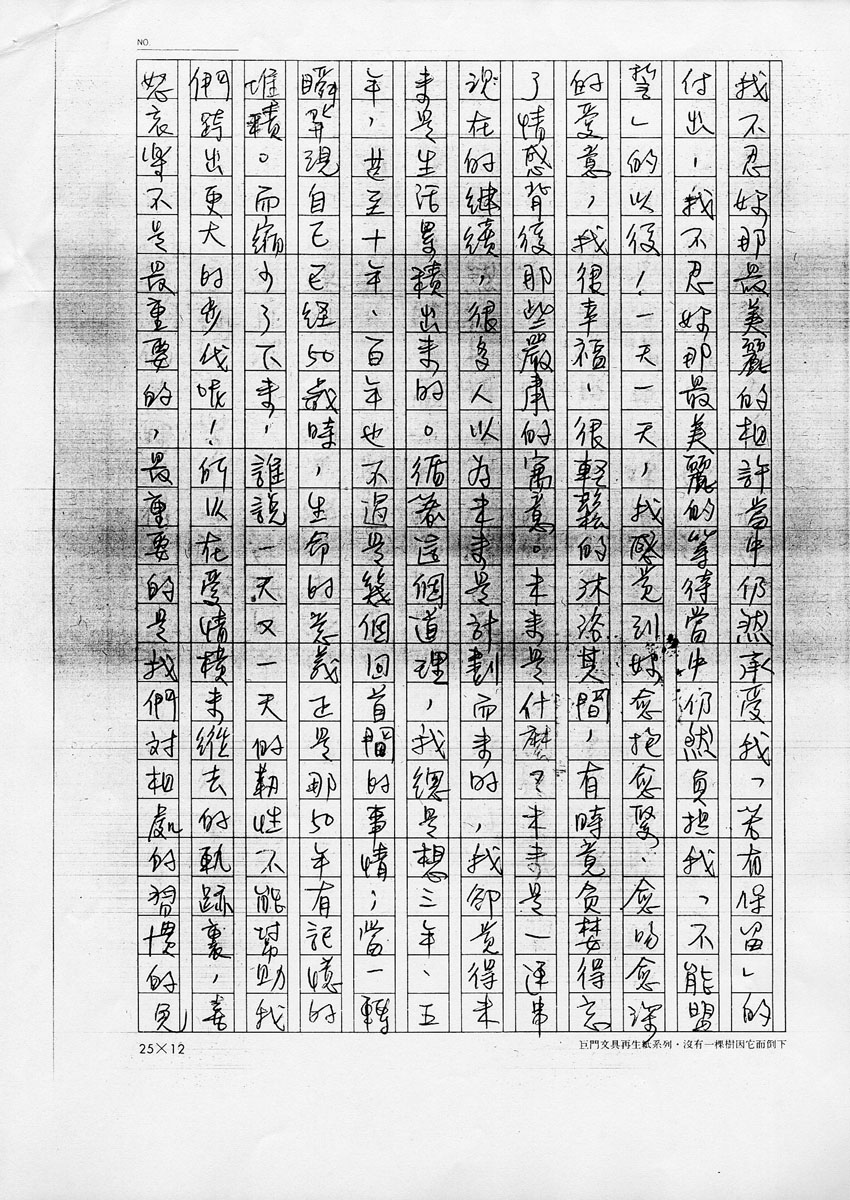 NO.
我不忍妳那最美麗的相許當中仍然承受我「若有保留」的
付出，我不忍妳那最美麗的等待當中仍然負担我「不能盟
誓」的以後！一天一天，我感覺到妳愈抱愈緊、愈吻愈深
的愛意，我很幸福、很輕鬆的沐浴其間，有時竟貪婪得忘
了情感背後那些嚴肅的寓意。未來是什麼？未來是一連串
現在的繼續，很多人以為未來是計劃而來的，我卻覺得未
來是生活累積出來的。循著這個道理，我總是想三年、五
年，甚至十年、百年也不過是幾個回首間的事情；當一轉
瞬發現自己已經50歲時，生命的意義正是那50年有記憶的
堆積。而縮少了下來，誰說一天又一天的動性不能幫助我
們跨出更大的步伐呢！所以在愛情橫來縱去的軌跡裏，喜
怒哀樂不是最重要的，最重要的是我們對相處的習慣的見
25×12
巨門文具再生紙系列・沒有一棵樹因它而倒下